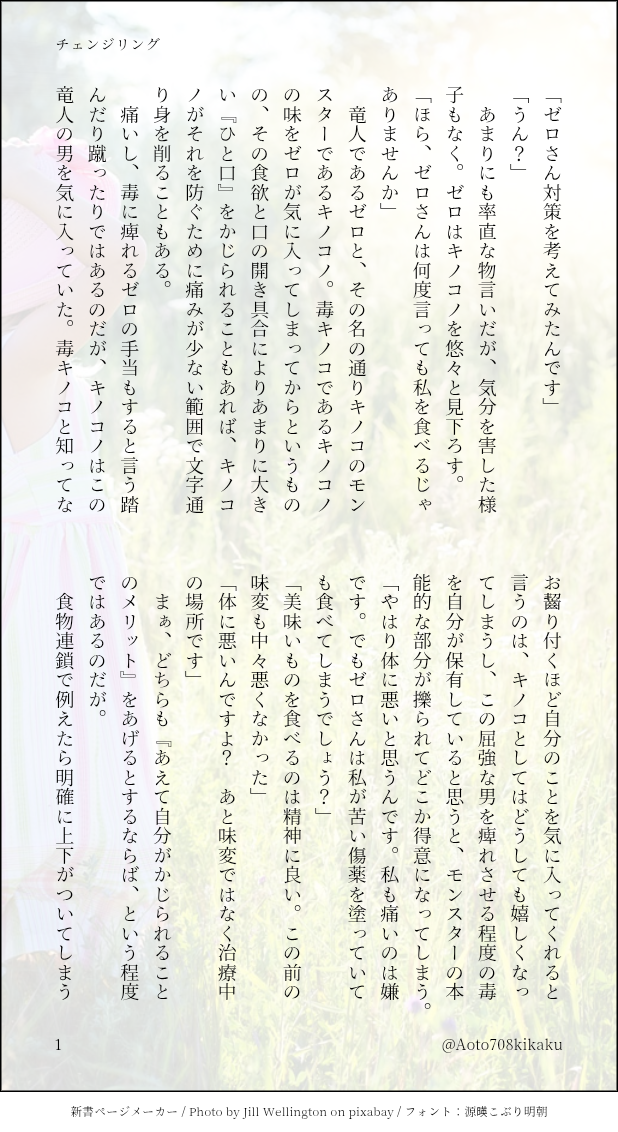 チェンジリング
「ゼロさん対策を考えてみたんです」
「うん？」
　あまりにも率直な物言いだが、気分を害した様
子もなく。ゼロはキノコノを悠々と見下ろす。
「ほら、ゼロさんは何度言っても私を食べるじゃ
ありませんか」
　竜人であるゼロと、その名の通りキノコのモン
スターであるキノコノ。毒キノコであるキノコノ
の味をゼロが気に入ってしまってからというもの
の、その食欲と口の開き具合によりあまりに大き
い『ひと口』をかじられることもあれば、キノコ
ノがそれを防ぐために痛みが少ない範囲で文字通
り身を削ることもある。
　痛いし、毒に痺れるゼロの手当もすると言う踏
んだり蹴ったりではあるのだが、キノコノはこの
竜人の男を気に入っていた。毒キノコと知ってな
お齧り付くほど自分のことを気に入ってくれると
言うのは、キノコとしてはどうしても嬉しくなっ
てしまうし、この屈強な男を痺れさせる程度の毒
を自分が保有していると思うと、モンスターの本
能的な部分が擽られてどこか得意になってしまう。
「やはり体に悪いと思うんです。私も痛いのは嫌
です。でもゼロさんは私が苦い傷薬を塗っていて
も食べてしまうでしょう？」
「美味いものを食べるのは精神に良い。この前の
味変も中々悪くなかった」
「体に悪いんですよ？　あと味変ではなく治療中
の場所です」
　まぁ、どちらも『あえて自分がかじられること
のメリット』をあげるとするならば、という程度
ではあるのだが。
　食物連鎖で例えたら明確に上下がついてしまう
1
@Aoto708kikaku
新書ページメーカー / Photo by Jill Wellington on pixabay / フォント：源暎こぶり明朝